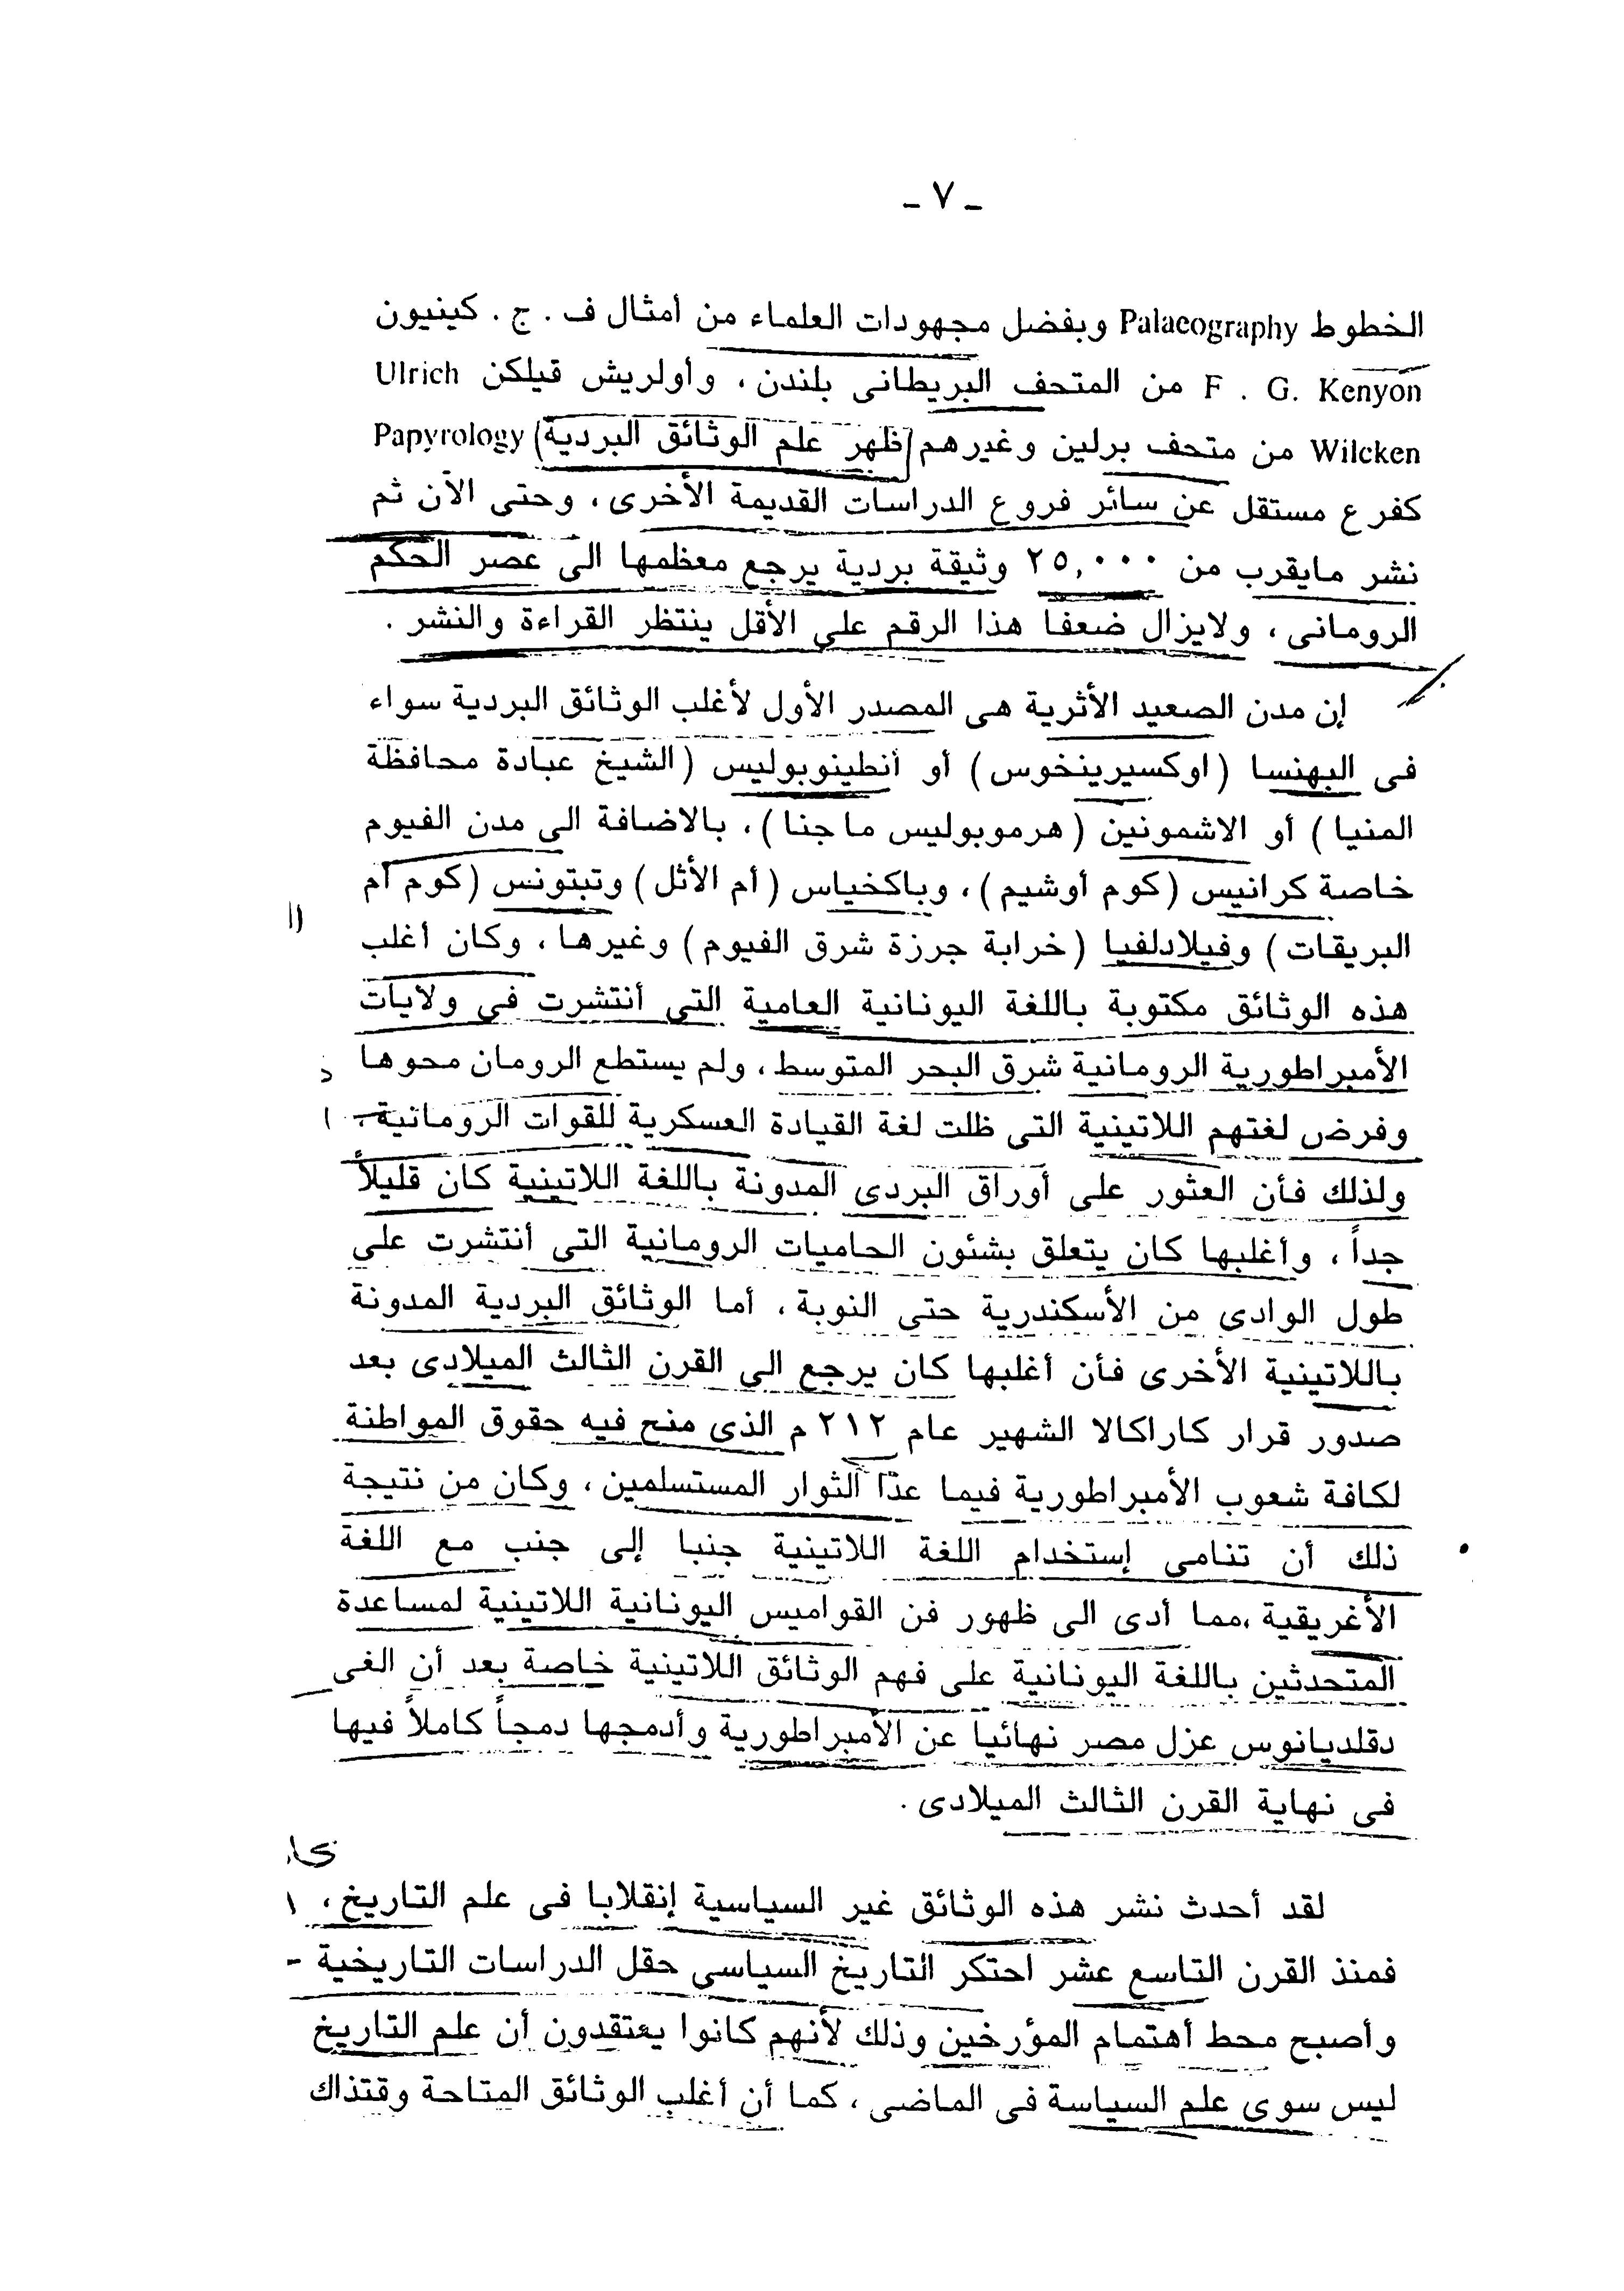 ـ ٧ ـ
الخطوط Palaeography وبفضل مجهودات العلماء من أمثال ف . ج . كينيون
F . G. Kenyon من المتحف البريطانى بلندن ، وأولريش ڤيلكن Ulrich
Wilcken من متحف برلين وغيرهم (ظهر علم الوثائق البردية) Papyrology
كفرع مستقل عن سائر فروع الدراسات القديمة الأخرى ، وحتى الآن ثم
نشر مايقرب من ٢٥,٠٠٠ وثيقة بردية يرجع معظمها الى عصر الحكم
الرومانى ، ولايزال ضعفا هذا الرقم على الأقل ينتظر القراءة والنشر .
إن مدن الصعيد الأثرية هى المصدر الأول لأغلب الوثائق البردية سواء
فى البهنسا (اوكسيرينخوس) أو أنطينوبوليس (الشيخ عبادة محافظة
المنيا) أو الاشمونين (هرموبوليس ماجنا) ، بالاضافة الى مدن الفيوم
خاصة كرانيس (كوم أوشيم) ، وباكخياس (أم الأثل) وتبتونس (كوم أم
البريقات) وفيلادلفيا (خرابة جرزة شرق الفيوم) وغيرها ، وكان أغلب
هذه الوثائق مكتوبة باللغة اليونانية العامية التى أنتشرت فى ولايات
الأمبراطورية الرومانية شرق البحر المتوسط ، ولم يستطع الرومان محوها
وفرض لغتهم اللاتينية التى ظلت لغة القيادة العسكرية للقوات الرومانية .
ولذلك فأن العثور على أوراق البردى المدونة باللغة اللاتينية كان قليلاً
جداً ، وأغلبها كان يتعلق بشئون الحاميات الرومانية التى أنتشرت على
طول الوادى من الأسكندرية حتى النوبة ، أما الوثائق البردية المدونة
باللاتينية الأخرى فأن أغلبها كان يرجع الى القرن الثالث الميلادى بعد
صدور قرار كاراكالا الشهير عام ٢١٢ م الذى منح فيه حقوق المواطنة
لكافة شعوب الأمبراطورية فيما عدا الثوار المستسلمين ، وكان من نتيجة
ذلك أن تنامى إستخدام اللغة اللاتينية جنبا إلى جنب مع اللغة
الأغريقية ،مما أدى الى ظهور فن القواميس اليونانية اللاتينية لمساعدة
المتحدثين باللغة اليونانية على فهم الوثائق اللاتينية خاصة بعد أن الغى
دقلديانوس عزل مصر نهائيا عن الأمبراطورية وأدمجها دمجاً كاملاً فيها
فى نهاية القرن الثالث الميلادى .
لقد أحدث نشر هذه الوثائق غير السياسية إنقلابا فى علم التاريخ ،
فمنذ القرن التاسع عشر احتكر التاريخ السياسى حقل الدراسات التاريخية -
وأصبح محط أهتمام المؤرخين وذلك لأنهم كانوا يعتقدون أن علم التاريخ
ليس سوى علم السياسة فى الماضى ، كما أن أغلب الوثائق المتاحة وقتذاك